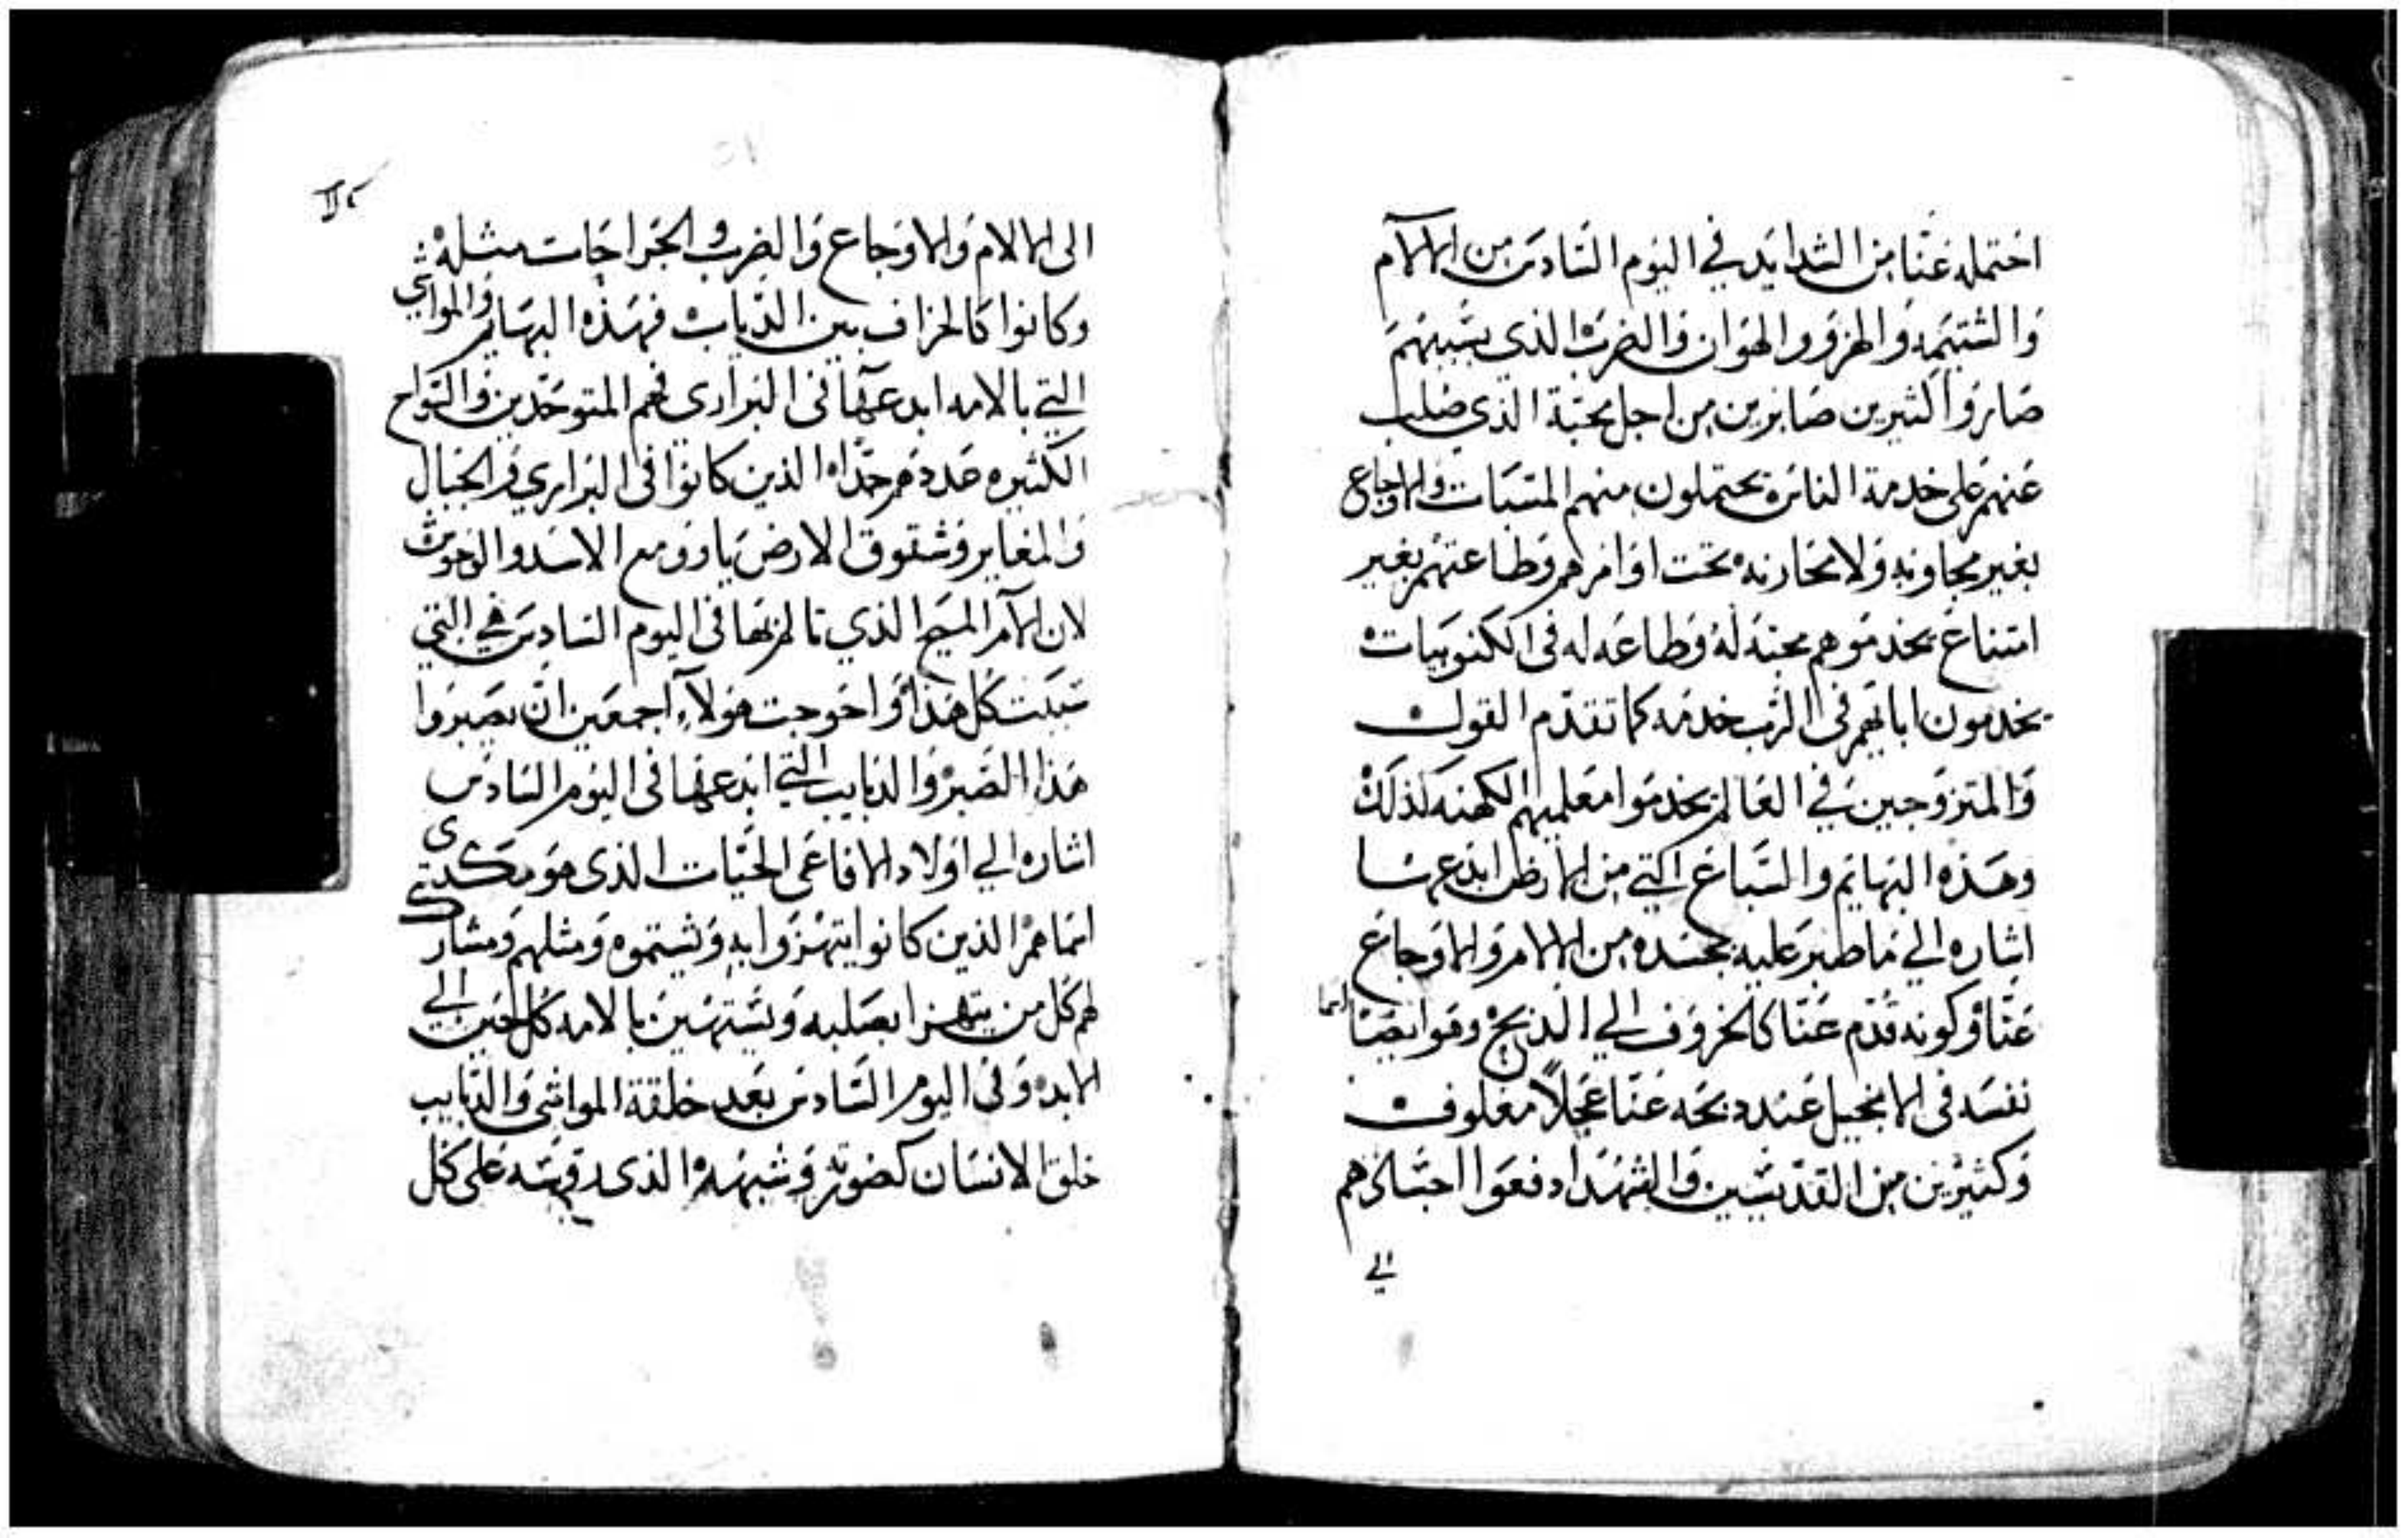 احتمله عنا من الشدايد في اليوم السادس من الالام
والشتيمه والهزو والهوان والضرب الذي بسببهم
صاروا كثيرين صابرين من اجل محبة الذي صلب
عنهم على خدمة الناس يحتملون منهم المسبات والاوجاع
بغير مجاوبه ولا محاربه تحت اوامرهم وطاعتهم بغير
امتناع يخدموهم محبة له وطاعه له في الكنوبيات
يخدمون ابايهم في الرب خدمه كما تقدم القول
والمتزوجين في العالم يخدموا معلميهم الكهنه كذلك
وهذه البهايم والسباع التي من الارض ابدعها
اشاره الي ما صبر عليه بجسده من الالام والاوجاع
عنا وكونه قدم عنا كالخروف الي الذبح وهو ايضا
نفسه في الانجيل عند ذبحه عنا عجلاً معلوف
وكثيرين من القديسين والشهدا دفعوا اجسادهم
الي
الى الالام والاوجاع والضرب والجراحات مثله
وكانوا كالخراف بين الدياب فهذه البهايم والمواشي
التي بالامه ابدعها في البراري فهم المتوحدين والسواح
الكثيره عددهم جداً الذين كانوا في البراري والجبال
والمغاير وشقوق الارض ياوو مع الاسد والوحوش
لان الام المسيح الذي تالم بها في اليوم السادس هي التي
سببت كل هذا واحوجت هولاء اجمعين ان يصبروا
هذا الصبر والدبايب التي ابدعها في اليوم السادس
اشاره الي اولاد الافاعي الحيات الذي هو
انما هم الذين كانوا يتهزوا به ويشتموه ومثلهم ومشارك
لهم كل من يتهزا بصلبه ويستهين بالامه كل حين الي
الابد وفي اليوم السادس بعد خلقة المواشي والدبايب
خلق الانسان كصورته وشبهه الذي على كل